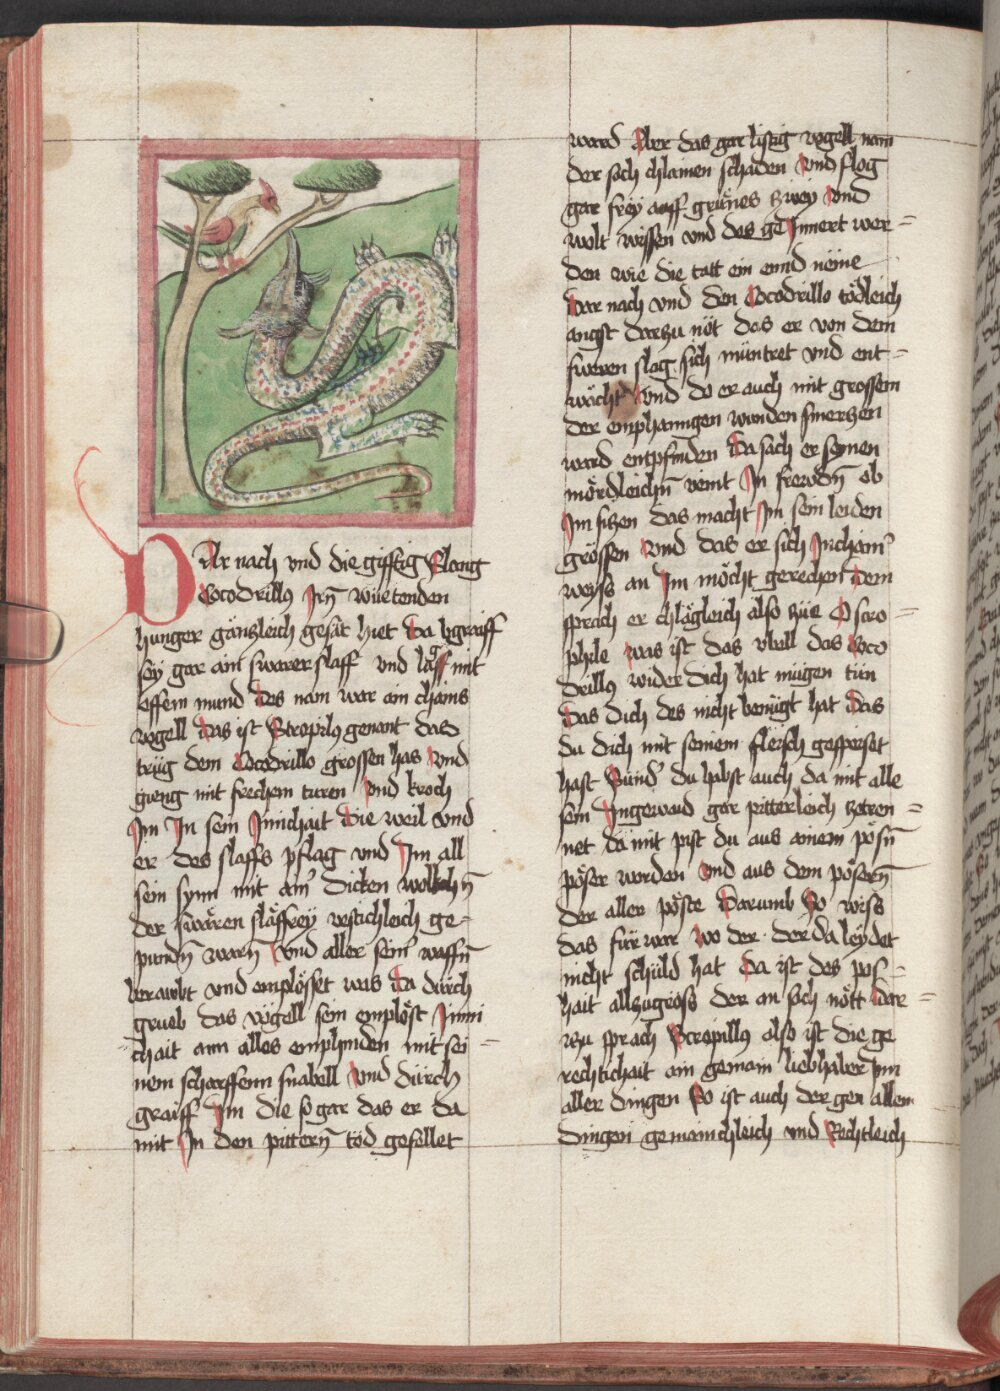 DAr nach vnd die gifftig Slang
Cocodrillus Irn wüetenden
hunger gänzleich gesät hiet Da begraiff
sey gar ain swarer slaff vnd lag mit
offem mund Des nam war ain chains
vogell Das ist Stropilus genant das
trüg dem Cocodrillo grossen has Vnd
gieng mit frechem turen Vnd kroch
Im In sein Innichait Die weil vnd
er des slaffs pflag vnd Im all
sein synn mit aim dicken wolkchn
der swären släffrey vestichleich ge-
pundn warn Vnd aller seiner waffn
beraubt vnd emplösset was Da dürch
grueb das vögell sein emplöst Inni
chait ann alles emphinden mit sei-
nem scharffenn snabell Vnd dürch
graiff Im die so gar das er da
mit In den pittern töd gefellet
ward Aber das gar listig vogell nam
der sach chlainen schaden Vnd flog
gar frey auff grüenes zwey Vnd
wolt wissen vnd des ge Innert wer-
den wie die tatt ein ennd näme
Dar nach vnd den Cocodrillo tödleich
angst darzu nöt das er von dem
sweren slag sich müntret vnd ent-
wächt Vnd do er auch mit grossem
der emphanngen wunden smerczen
ward entpfinden Da sach er seynen
mördleichn veint In frewdn ob
Im siczen das macht Im sein leiden
grössen Vnd das er sich In chainer
weyss an Im möcht gerechen Dem
sprach er chlägleich also zue O scro-
phile was ist das vbell das Coco
drillus wider dich hat mügen tün
Das dich des nicht benügt hat Das
du dich mit seinem fleisch gespeiset
hast Sünder du habst auch da mit alle
sein Ingewaid gar pitterleich zetren-
net da mit pist du aus ainem pösn
pöser worden Vnd aus dem pösern
der aller pöste Darumb So wiss
das für war Wo der der da leydet
nicht schüld hat Da ist des pos-
hait allzugröss der an sach nött Dar-
zu sprach Stropillus also ist die ge
rechtichait ain gemain liebhaber Inn
aller dingen So ist auch der gen allen
dingen gemainchleich vnd Rechtleich